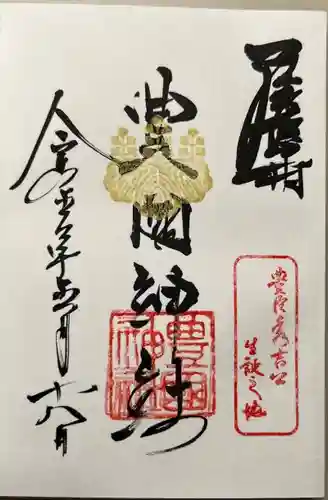 尾張中村
豊國神社
豊國神社
豊臣秀吉公
生誕之地
令和五年五月十八日